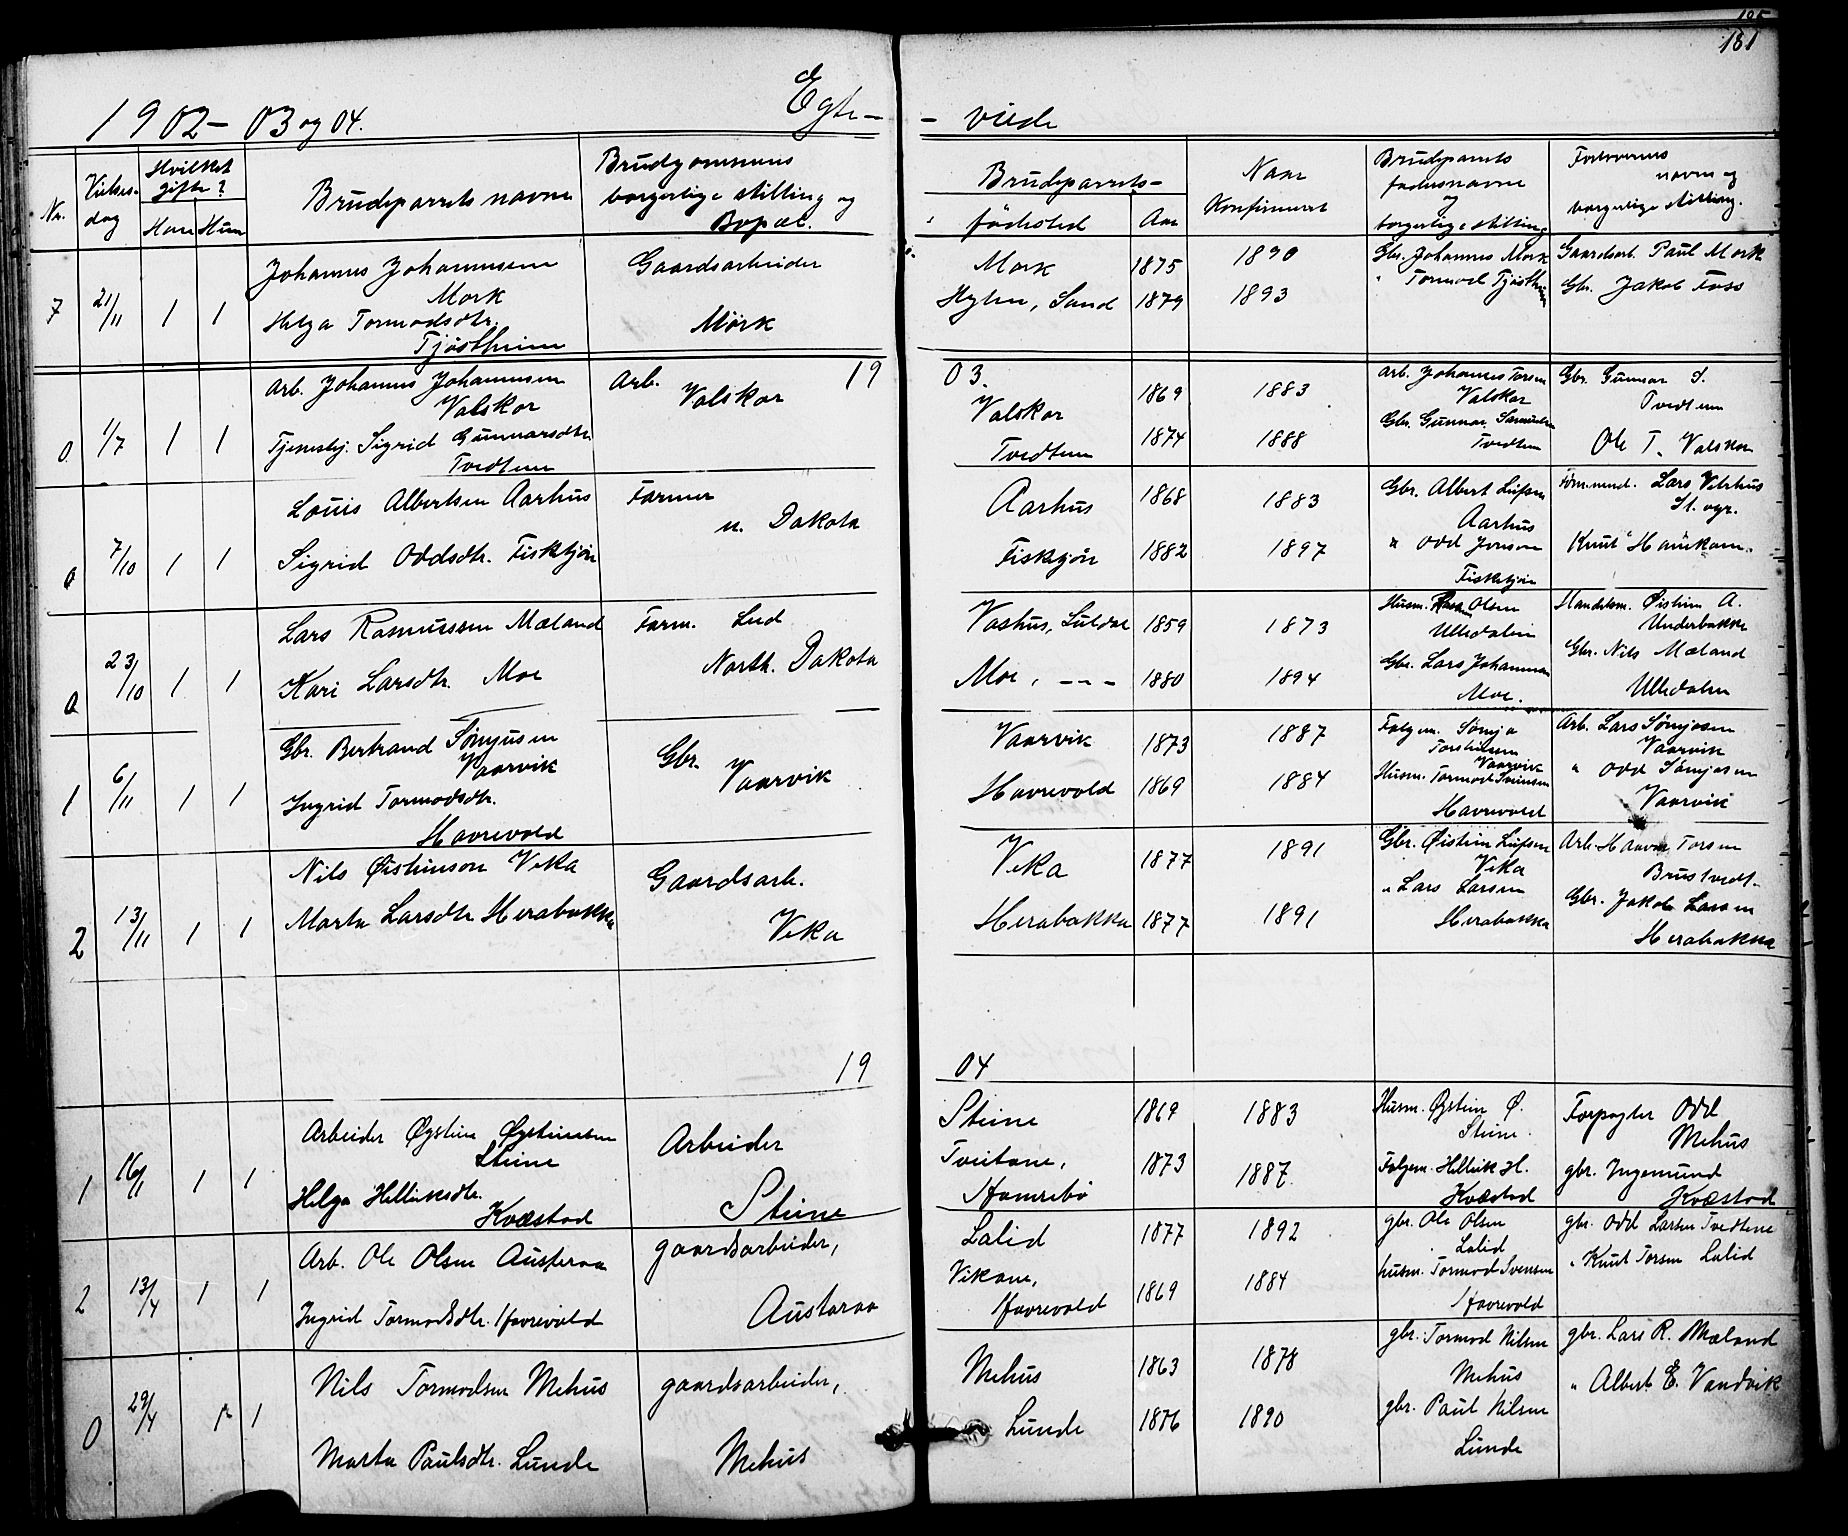 181
1902 - 03 og 04.
Egte - - viede
Nr.
Vielses-
dag
Hvilket
gifte?
Han Hun
Brudeparrets navne
Brudgommens
borgerlige stilling og
Bopæl.
Brudeparrets-
fødested
Aar
Naar
Konfirmeret
Brudeparrets
fædrenavne
og
borgerlige stilling
Forlovernes
navne og
borgerlige stilling.
7 21/11 1 1
Johannes Johannesen
Mork
Helga Tormodsdtr.
Tjøstheim
Gaardsarbeider
Mork
Mork 1875 1890
Hylen, Sand 1879 1893
Gbr. Johannes Mork
" Tormod Tjøstheim
Gaardsarb. Paul Mork
Gbr. Jakob Foss
19 03.
0 1/7 1 1
Arb. Johannes Johannesen
Valskar
Tjenestpj. Sigrid Gunnarsdtr.
Tvedten
Arb.
Valskar
Valskar 1869 1883
Tvedten 1874 1888
Arb. Johannes Torsen
Valskar
Gbr. Gunnar Samuelsen
Tvedten
Gbr. Gunnar S.
Tvedten
Ole T. Valskar
0 7/10 1 1
Louis Albertsen Aarhus
Sigrid Oddsdtr. Fisketjøn
Farmer
n. Dakota
Aarhus 1868 1883
Fisketjøn 1882 1897
Gbr. Albert Leifsen
Aarhus
" Odd Jonson
Fisketjøn
Tømmend. Lars Vetrhus
Knut Haukam.
0 23/10 1 1
Lars Rasmussen Mæland
Kari Larsdtr. Moe
Farm. Lud
North. Dakota
Vashus, Suldal 1859 1873
Moe, - - - 1880 1894
Husm. Olsen
Ulledalen
Gbr. Lars Johannesen
Moe.
Handelsm. Øistein A.
Underbakke
Gbr. Nils Mæland
Ulledalen
1 6/11 1 1
Gbr. Bertrand Sømjusen
Vaarvik
Ingrid Tormodsdtr.
Havrevold
Gbr.
Vaarvik
Vaarvik 1873 1887
Havrevold 1869 1884
Folgem. Sømja
Torsteinsen
Vaarvik
Husm. Tormod Sveinsen
Havrevold
Arb. Lars Sømjasen
Vaarvik
" Odd Sømjasen
Vaarvik
2 13/11 1 1
Nils Øisteinson Veka
Marta Larsdtr Herabakka
Gaardsarb.
Veka
Veka 1877 1891
Herabakka 1877 1891
Gbr. Øistein Leifsen
Veka
" Lars Larsen
Herabakka
Arb. Haavar Torsen
Brustvedt.
Gbr. Jakob Larsen
Herabakka
19 04
1 16/1 1 1
Arbeider Øystein Øysteinsen
Steine
Helga Helliksdtr.
Kvæstad
Arbeider
Steine
Steine 1869 1883
Tveitane, 1873 1887.
Hamrebø
Husm. Øystein Ø.
Steine.
Folgem. Hellik H.
Kvæstad
Forpagter Odd
Mehus
gbr. Ingemund
Kvæstad
2 13/4 1 1
Arb. Ole Olsen Austeraa
Ingrid Tormodsdtr. Havrevold
gaardsarbeider,
Austaraa
Lalid 1877 1892
Vikane, 1869 1884
Havrevold
gbr. Ole Olsen
Lalid
husm. Tormod Svensen
Havrevold
gbr. Odd Larsen Tvedtene
" Knut Torsen Lalid
0 29/4 1
Nils Tormodsen Mehus
Marta Paulsdtr. Lunde
gaardsarbeider,
Mehus
Mehus 1863 1878
Lunde 1876 1890
gbr. Tormod Nilsen
Mehus
gbr. Paul Nilsen
Lunde
gbr. Lars R. Mæland
" Albert E. Vandvik